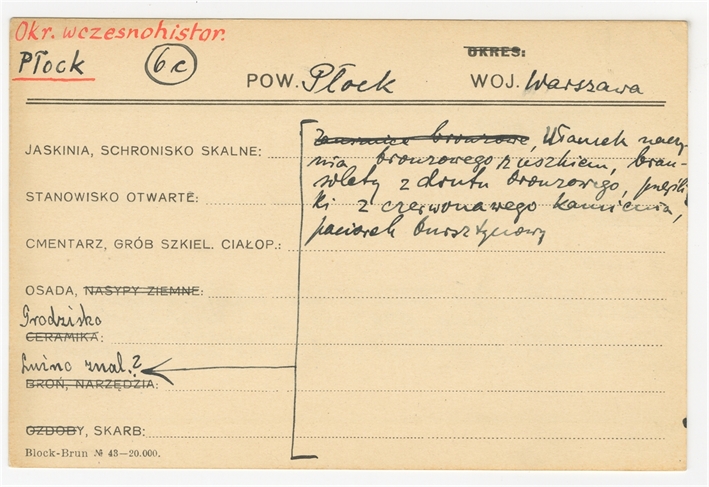 Okr. wczesnohistor.
Płock 6c OKRES:
POW. Płock WOJ. Warszawa
JASKINIA, SCHRONISKO SKALNE:
STANOWISKO OTWARTE:
CMENTARZ, GRÓB SZKIEL. CIAŁOP.:
OSADA, NASYPY ZIEMNE:
Grodzisko
CERAMIKA:
Luźno znal.?
BROŃ, NARZĘDZIA:
OZDOBY, SKARB:
Block-Brun № 43—20.000.
bronzowe, Ułamek naczy-
nia bronzowego z uszkiem, bran-
solety z drutu bronzowego, przęśli-
ki z czerwonawego kamienia,
paciorek bursztynowy